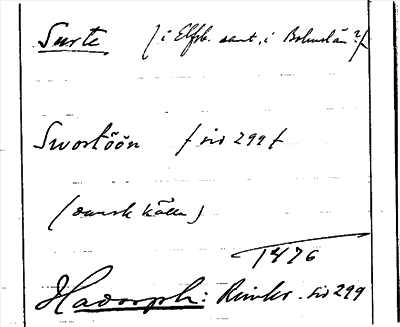 Surte / i Elfsb. samt i Bohuslän? /
Swortöön / sid 299 /
(dansk källa)
1476
Hadorph: Rimkr. sid 299